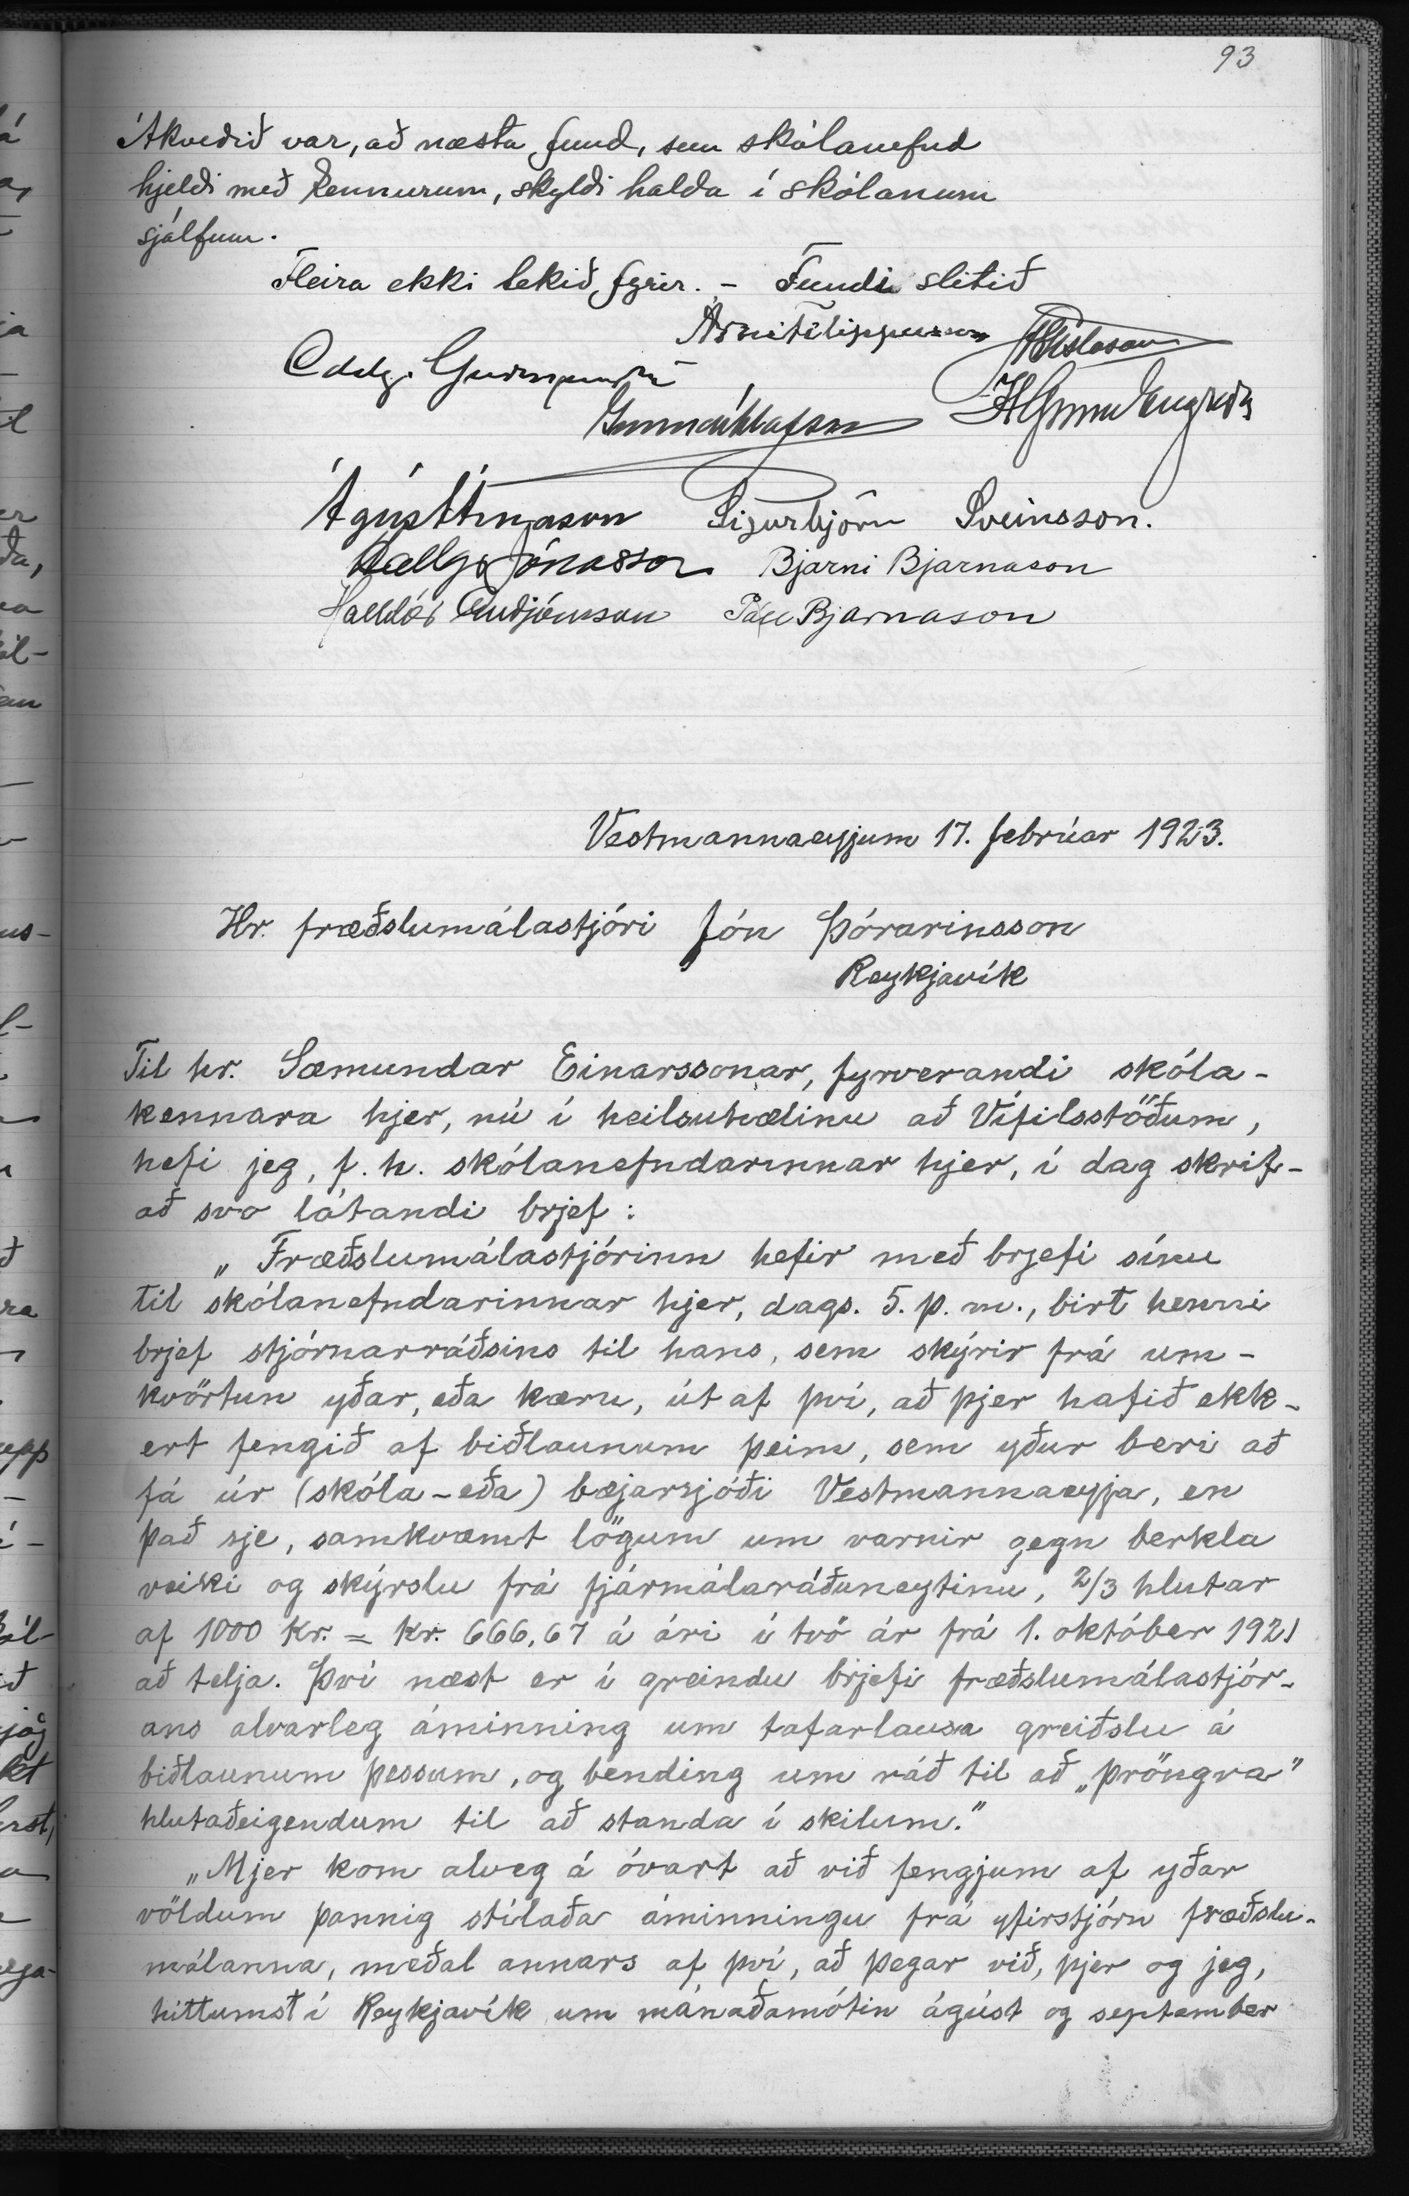 93
Ákveðið var, að næsta fund, sem skólanefnd
hjeldi með kennurum, skyldi halda í skólanum
sjálfum.
Fleira ekki tekið fyrir. – Fundi slitið
Árni Filippusson JGíslason
Oddg. Guðmundss
Gunnar Ólafsson
Ágúst Árnason Sigurbjörn Sveinsson.
Hallgr Jónasson Bjarni Bjarnason
Halldór Guðjónsson Páll Bjarnason
Vestmannaeyjum 17. febrúar 1923.
Hr. fræðslumálastjóri Jón Þórarinsson
Reykjavík
Til hr. Sæmundar Einarssonar, fyrverandi skóla-
kennara hjer, nú í heilsuhælinu að Vífilsstöðum,
hefi jeg, f. h. skólanefndarinnar hjer, í dag skrif-
að svo látandi brjef:
„Fræðslumálastjórinn hefir með brjefi sínu
til skólanefndarinnar hjer, dags. 5. þ. m., birt henni
brjef stjórnarráðsins til hans, sem skýrir frá um-
kvörtun yðar, eða kæru, út af því, að þjer hafið ekk-
ert fengið af biðlaunum þeim, sem yður beri að
fá úr (skóla-eða) bæjarsjóði Vestmannaeyja, en
það sje, samkvæmt lögum um varnir gegn berkla
veiki og skýrslu frá fjármálaráðuneytinu, 2/3 hlutar
af 1000 kr. = kr. 666,67 á ári í tvö ár frá 1. október 1921
að telja. Því næst er í greindu brjefi fræðslumálastjór-
ans alvarleg áminning um tafarlausa greiðslu á
biðlaunum þessum, og bending um ráð til að „þröngva"
hlutaðeigendum til að standa í skilum."
„Mjer kom alveg á óvart að við fengjum af yðar
völdum þannig stílaða áminningu frá yfirstjórn fræðslu-
málanna, meðal annars af því, að þegar við, þjer og jeg,
hittumst í Reykjavík um mánaðamótin ágúst og september